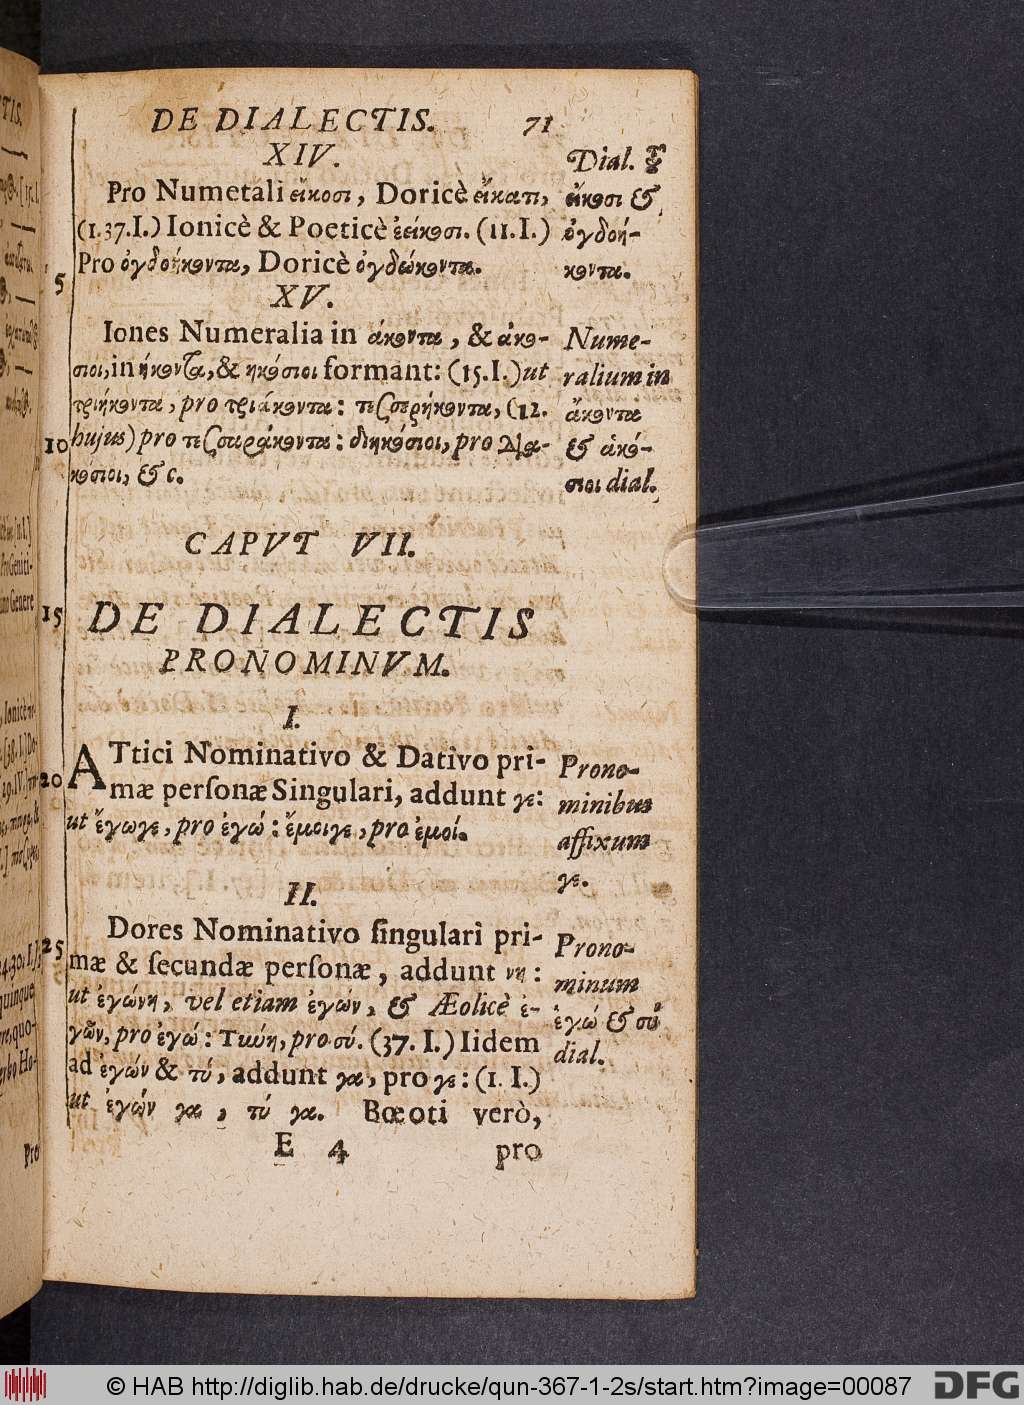 DE DIALECTIS. 71
XIV.
Pro Numetali εἴκοσι, Doricè εἴκατι,
(1.37.I.) Ionicè & Poeticè ἐείκοσι. (11.I.)
Pro ὀγδοήκοντα, Doricè ὀγδώκοντα.
Dial. τȣ͂
εἴκοσι &
ὀγδοή-
κοντα.
5
XV.
Iones Numeralia in άκοντα, & ακό-
σιοι, in ήκοντα, & ηκόσιοι formant: (15.I.) ut
τριήκοντα, pro τριάκοντα: τεσσερήκοντα, (12.
hujus) pro τεσσαράκοντα: διηκόσιοι, pro δια-
κόσιοι, & c.
Nume-
ralium in
άκοντα
& ακό-
σιοι dial.
10
CAPVT VII.
15
DE DIALECTIS
PRONOMINVM.
I.
ATtici Nominativo & Dativo pri-
mæ perſonæ Singulari, addunt γε:
ut ἔγωγε, pro ἐγώ: ἔμοιγε, pro ἐμοί.
Prono-
minibus
affixum
γε.
20
II.
Dores Nominativo ſingulari pri-
mæ & ſecundæ perſonæ, addunt νη:
ut ἐγώνη, vel etiam ἐγών, & Æolicè ἐ-
γῶν, pro ἐγώ: Τυύη, pro σύ. (37. I.) Iidem
ad ἐγών & τύ, addunt γα, pro γε: (1. I.)
ut ἐγών γα, τύ γα. Bœoti verò,
Prono-
minum
ἐγώ & σύ
dial.
25
E 4 pro
© HAB http://diglib.hab.de/drucke/qun-367-1-2s/start.htm?image=00087
DFG